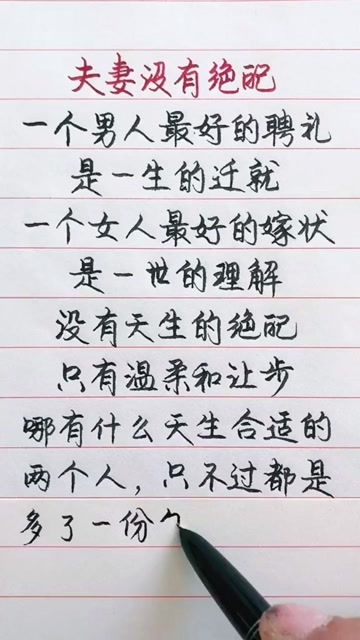 夫妻没有绝配
一个男人最好的聘礼
是一生的迁就
一个女人最好的嫁状
是一世的理解
没有天生的绝配
只有温柔和让步
哪有什么天生合适的
两个人，只不过都是
多了一份